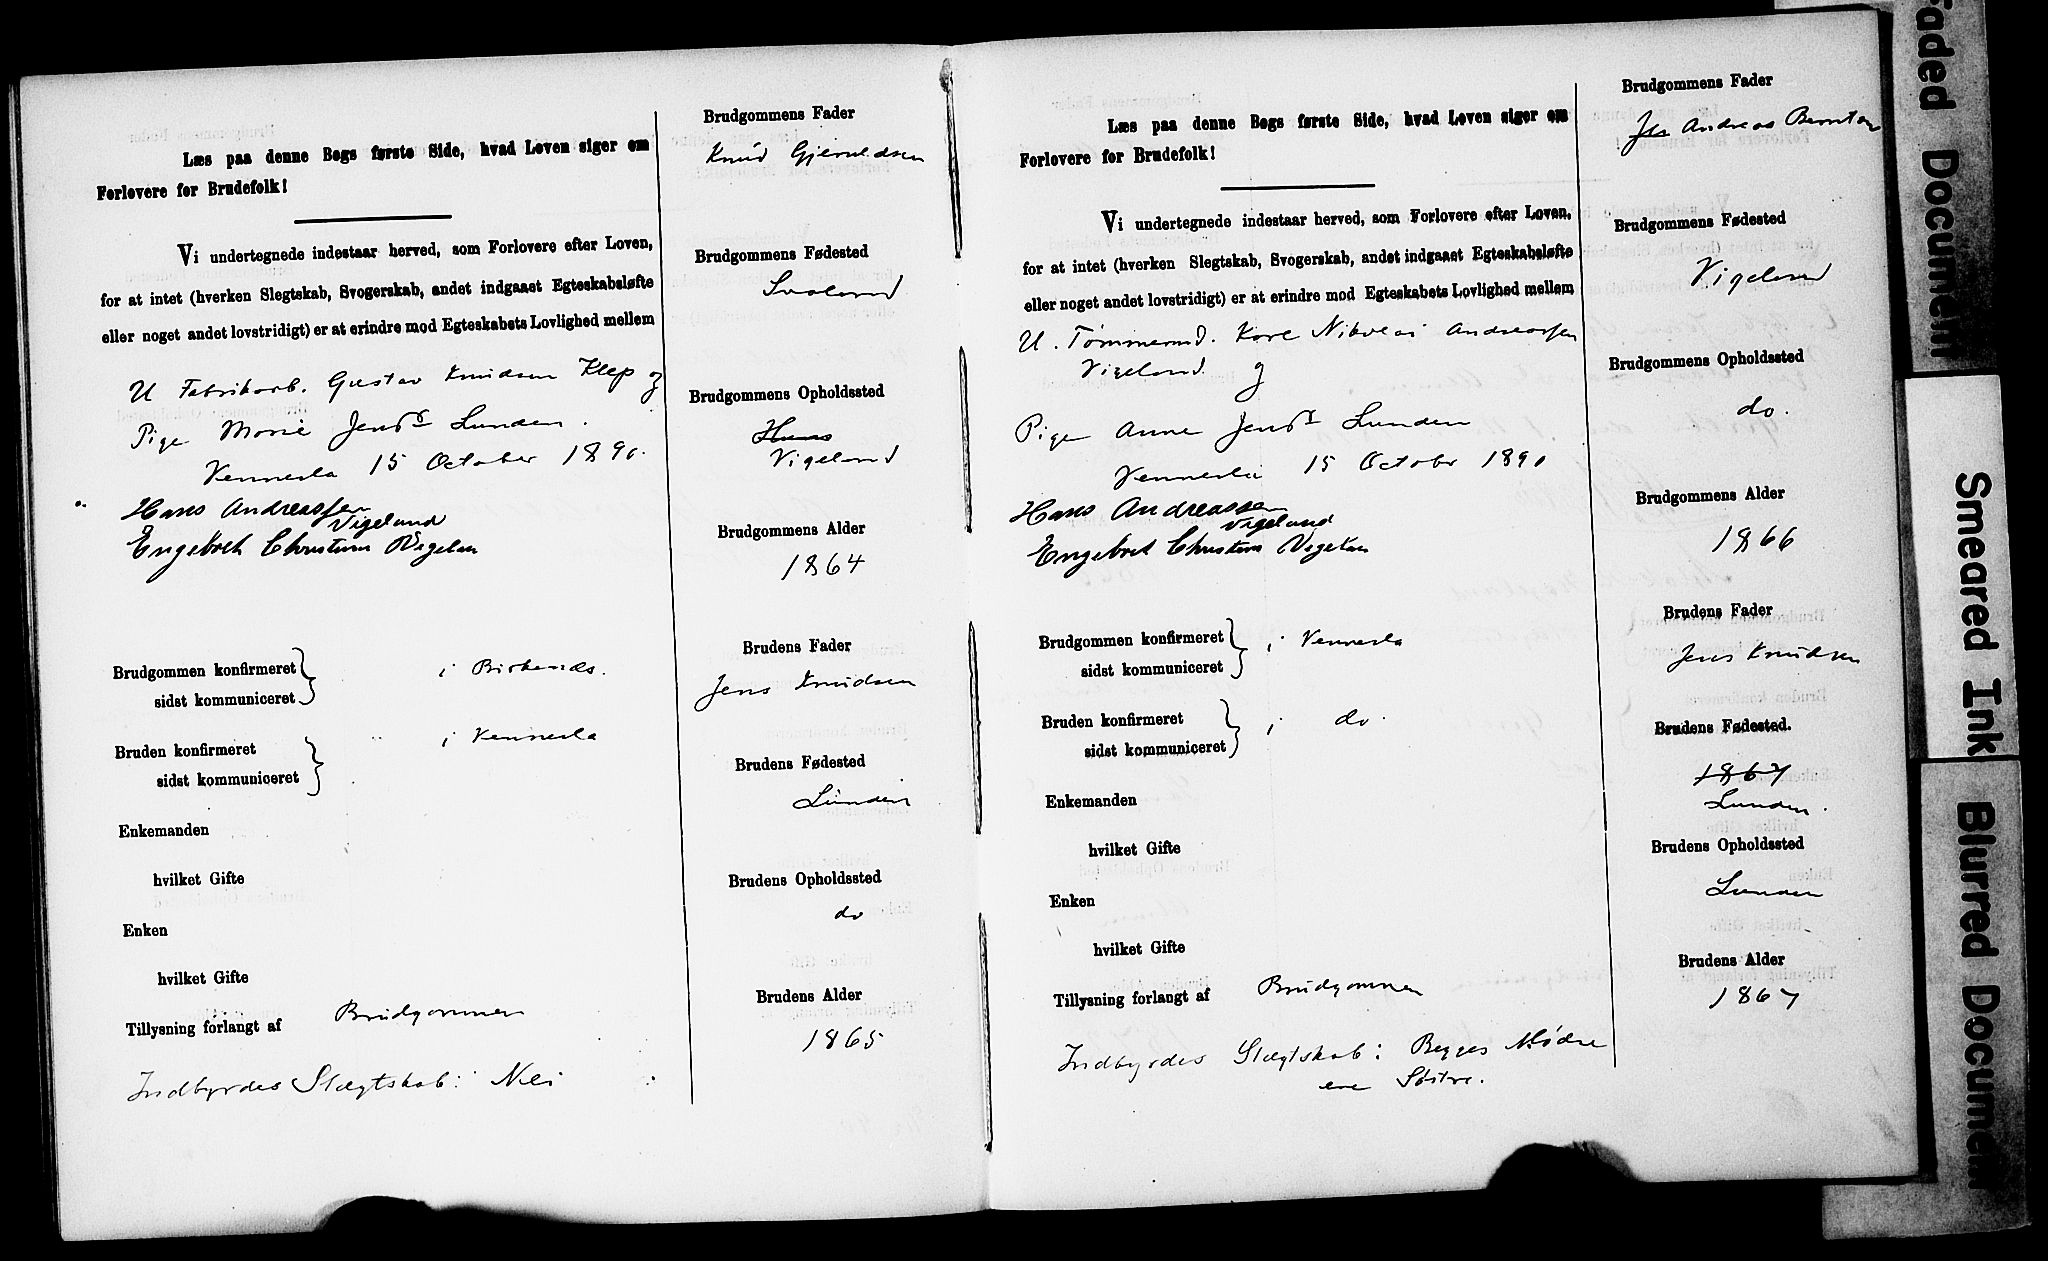 Læs paa denne Bogs første Side, hvad Loven siger om
Forlovere for Brudefolk!
Vi undertegnede indestaar herved, som Forlovere efter Loven,
for at intet (hverken Slegtskab, Svogerskab, andet indgaaet Egteskabsløfte
eller noget andet lovstridigt) er at erindre mod Egteskabets Lovlighed mellem
U Fabrikarb. Gustav Knudsen Klep og
Pige Marie Jensdr Lunden.
Vennesla 15 October 1890.
Hans Andreassen
Vigeland
Engebret Christian Vigelan
Brudgommen konfirmeret
sidst kommuniceret
i Birkenes.
Bruden konfirmeret
sidst kommuniceret
i Vennesla
Enkemanden
hvilket Gifte
Enken
hvilket Gifte
Tillysning forlangt af Brudgommen
Indbyrdes Slægtskab: Nei
Brudgommens Fader
Knud Gjeruldsen
Brudgommens Fødested
Svaland
Brudgommens Opholdssted
Hans
Vigeland
Brudgommens Alder
1864
Brudens Fader
Jens Knudsen
Brudens Fødested
Lunden
Brudens Opholdssted
do
Brudens Alder
1865
Læs paa denne Bogs første Side, hvad Loven siger om
Forlovere for Brudefolk!
Vi undertegnede indestaar herved, som Forlovere efter Loven,
for at intet (hverken Slegtskab, Svogerskab, andet indgaaet Egteskabsløfte
eller noget andet lovstridigt) er at erindre mod Egteskabets Lovlighed mellem
U. Tømmermd. Karl Nikolai Andreassen
Vigeland og
Pige Anne Jensdr Lunden
Vennesla 15 October 1890
Hans Andreassen
Vigeland
Engebret Christian Vigelan
Brudgommen konfirmeret
sidst kommuniceret
i Vennesla
Bruden konfirmeret
sidst kommuniceret
i do.
Enkemanden
hvilket Gifte
Enken
hvilket Gifte
Tillysning forlangt af Brudgommen
Indbyrdes Slægtskab: Begges Mødre
ere Søstre.
Brudgommens Fader
Andreas Berntsen
Brudgommens Fødested
Vigeland
Brudgommens Opholdssted
do.
Brudgommens Alder
1866
Brudens Fader
Jens Knudsen
Brudens Fødested.
1867
Lunden.
Brudens Opholdssted
Lunden
Brudens Alder
1867
Faded Document
Smeared Ink
Blurred Document